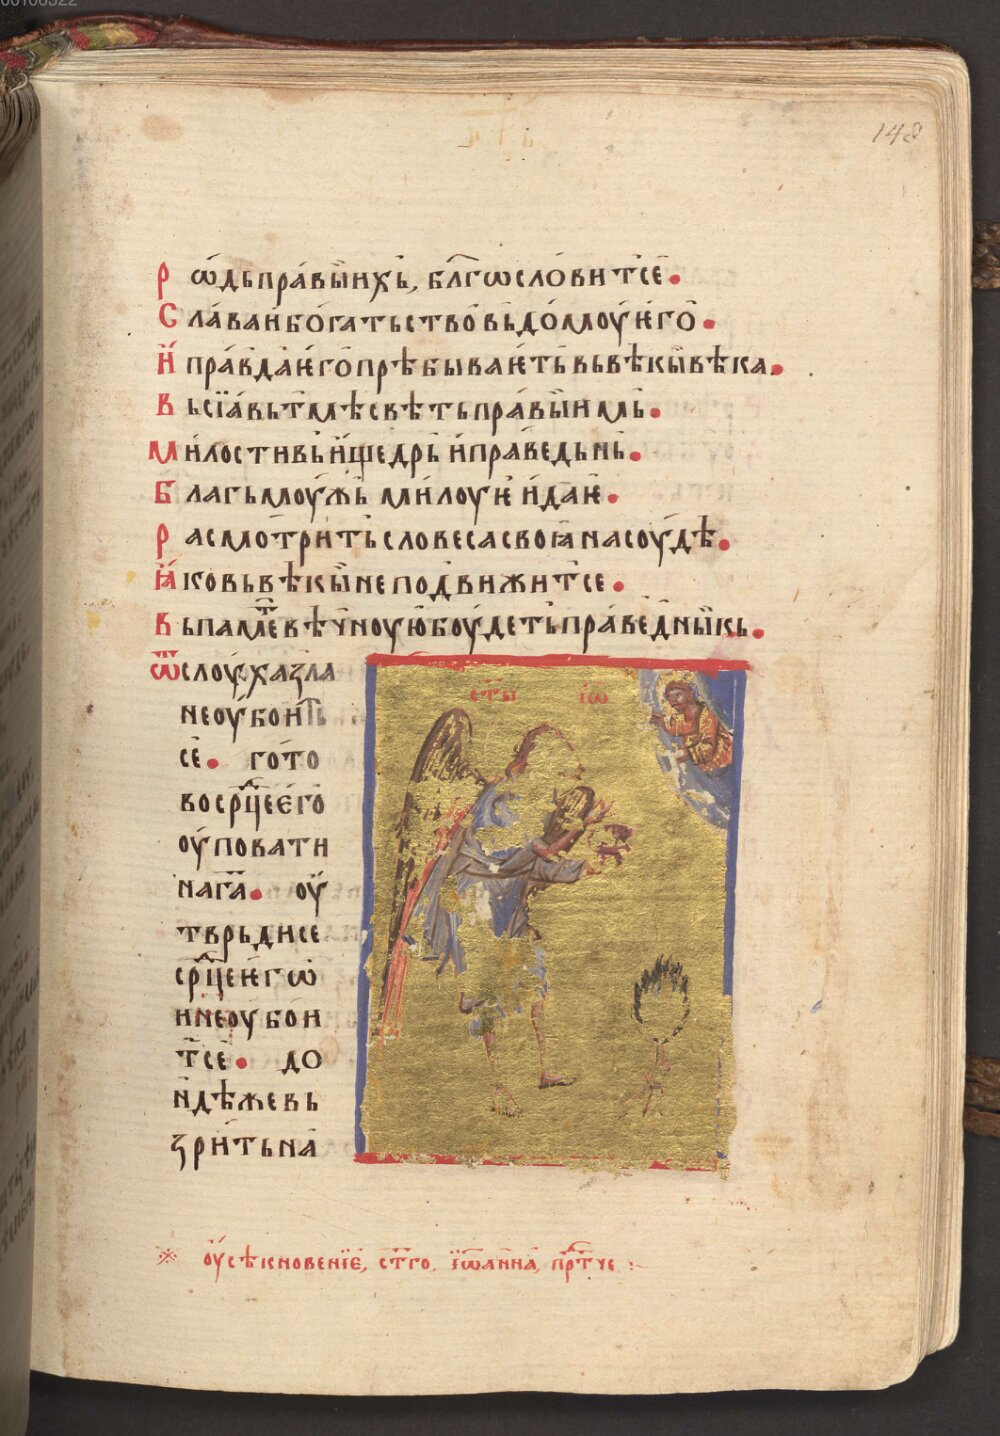 148
Рѡ́дь пра́вы́ихь, бл҃гѡслѡ́витсе.
Сла́ва и҆ бога́тьство вь домоу̀ ѥ҆го̀.
И҆ пра́вда ѥ҆го̀ прѣбыва́ѥть вь вѣ́кы вѣ́ка.
Вьсїа̀ вь тмѣ̀ свѣ́ть пра́вы́имь.
Ми́лостивь и҆ ще́дрь и҆ пра́ведьнь.
Бла́гь моу́жь ми́лоуѥ и҆ даѥ̀.
Расмо́трить словеса̀ своꙗ̀ на соу́дѣ.
Ꙗ҆ко вь вѣ́кы не подви́житсе.
Вь паме́т вѣ́чноую боу́деть пра́ведныикь.
Ѿ слоу́ха зла
не оу҆бои́ть
се. гото
во ср҃це е҆го
оу҆пова́ти
на г҃а. оу҆
тврьди се
ср҃це ѥ҆гѡ̀
и҆ не оу҆бои́
тсе. до
и҆дѣже вь
зри́ть на
ст҃ы їѡ
оу҆сѣкновенїе, ст҃го, їѡа́нна, прⷣтче